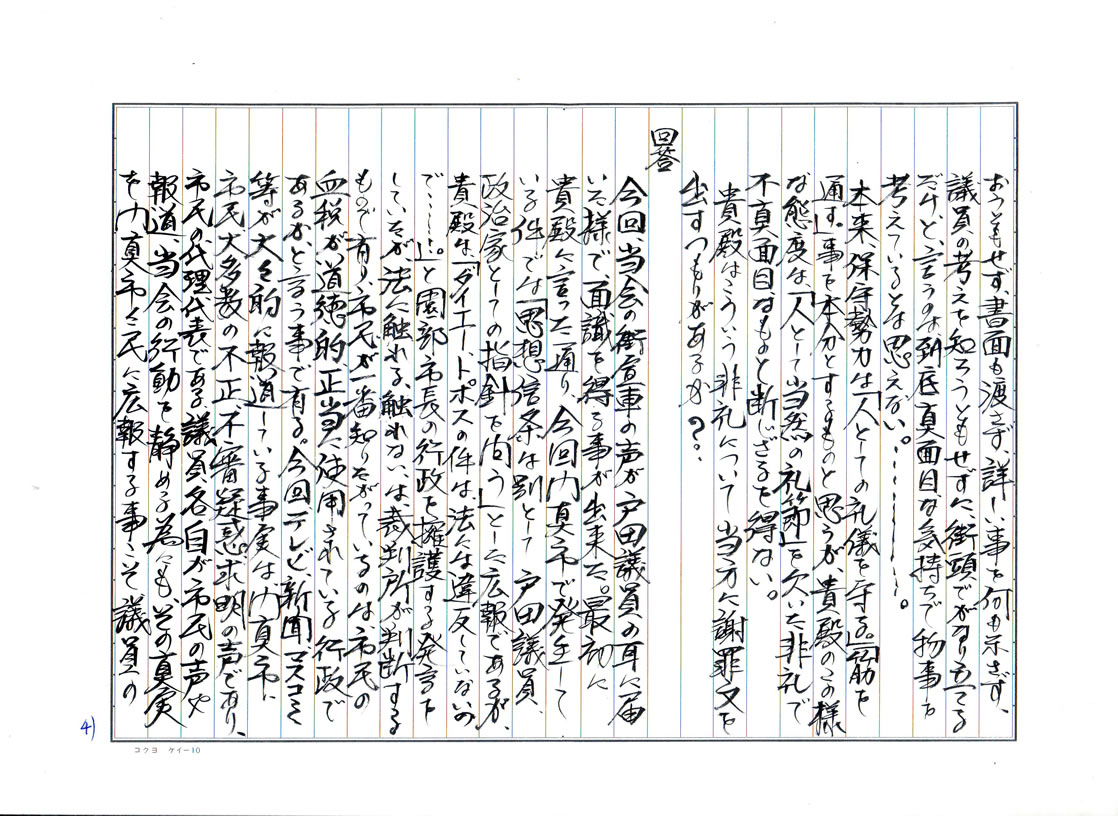 おうともせず、書面も渡さず、詳しい事を何も示さず、
議員の考えを知ろうともせずに、街頭でがなり立てる
だけと、言うのは到底真面目な気持ちで物事を
考えているとは思えない。…………。
本来、保守勢力は「人としての礼儀を守る。」「筋を
通す」事を本分とするものと思うが貴殿のこの様
な態度は、「人として当然の礼節」を欠いた非礼で
不真面目なものと断じざるを得ない。
貴殿はこういう非礼について当方に謝罪文を
出すつもりがあるか?.
回答
今回、当会の街宣車の声が戸田議員の耳に届
いた様で、面識を得る事が出来た。最初に
貴殿に言った通り、今回門真市で発生して
いる件では「思想信条は別として 戸田議員、
政治家としての指針を問う」とした広報であるが、
貴殿は、「ダイエー、トポスの件は、法には違反していないの
で……」。と園部市長の行政を擁護する発言を
していたが法に触れる、触れない、は、裁判所が判断する
もので有り、市民が一番知りたがっているのは市民の
血税が、道徳的、正当に使用されている行政で
あるか、と言う事で有る。今回テレビ、新聞、マスコミ
等が大々的に報道している事実は、門真市に
市民大多数の不正、不審疑惑、求明の声であり、
市民の代理代表である議員、各自が市民の声や
報道、当会の行動を静める為にも、その真実
を門真市々民に広報する事こそ議員の
4)
コクヨ ケイー10